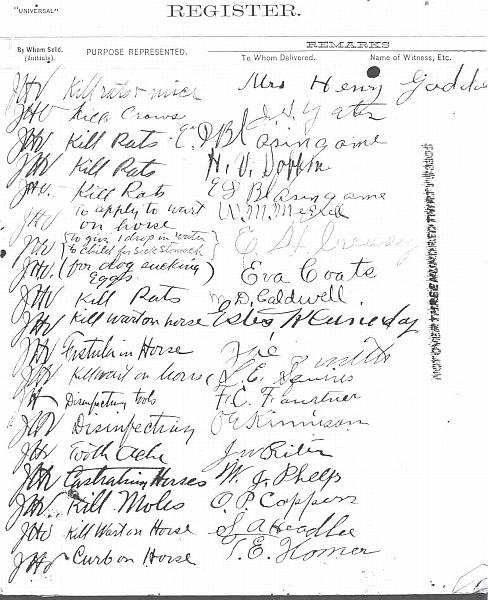 "UNIVERSAL"
REGISTER.
REMARKS
By Whom Sold.
(Initials).
PURPOSE REPRESENTED.
To Whom Delivered.
Name of Witness, Etc.
JHV Kill rats & mice Mrs Henry
JHV Kill Crows
JHV Kill Rats E. D Blasingame
JHV Kill Rats H. V.
JHV. Kill Rats E D Blasingame
JHV To apply to wart W. M.
on horse
JHV {To give 1 drop in water
to child for Sick Stomach
JHV. (for dog sucking) Eva Coats
Eggs.
JHV Kill Rats D, Caldwell.
JHV Kill wart on horse Estes
JHV Fistula in Horse
JHV Kill wart on horse S. E.
JH Disinfecting tools F. C. Faustner
JHV Disinfecting Kinnison
JHV Tooth Ache J W
JHV Castrating Horses W. J. Phelps
JHV. Kill Moles O. P. Coppers
JHV Kill Wart on Horse S A Headlee
JHV Curb on Horse T. E. Homer
NOT OVER THREE HUNDRED THIRTY